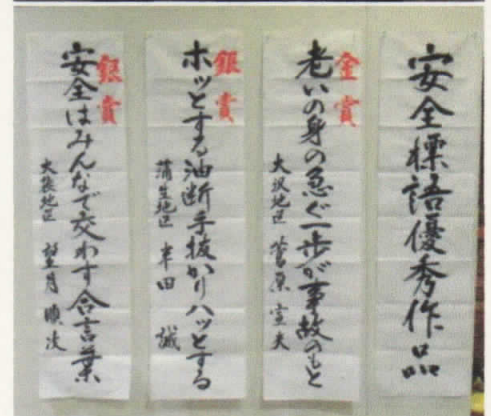 安全標語優秀作品
金賞
老いの身の急ぐ一歩が事故のもと
大沢地区 菅原宣夫
銀賞
ホッとする油断手抜かりハッとする
蒲生地区 半田 誠
銀賞
安全はみんなで交わす合言葉
大袋地区 望月順次